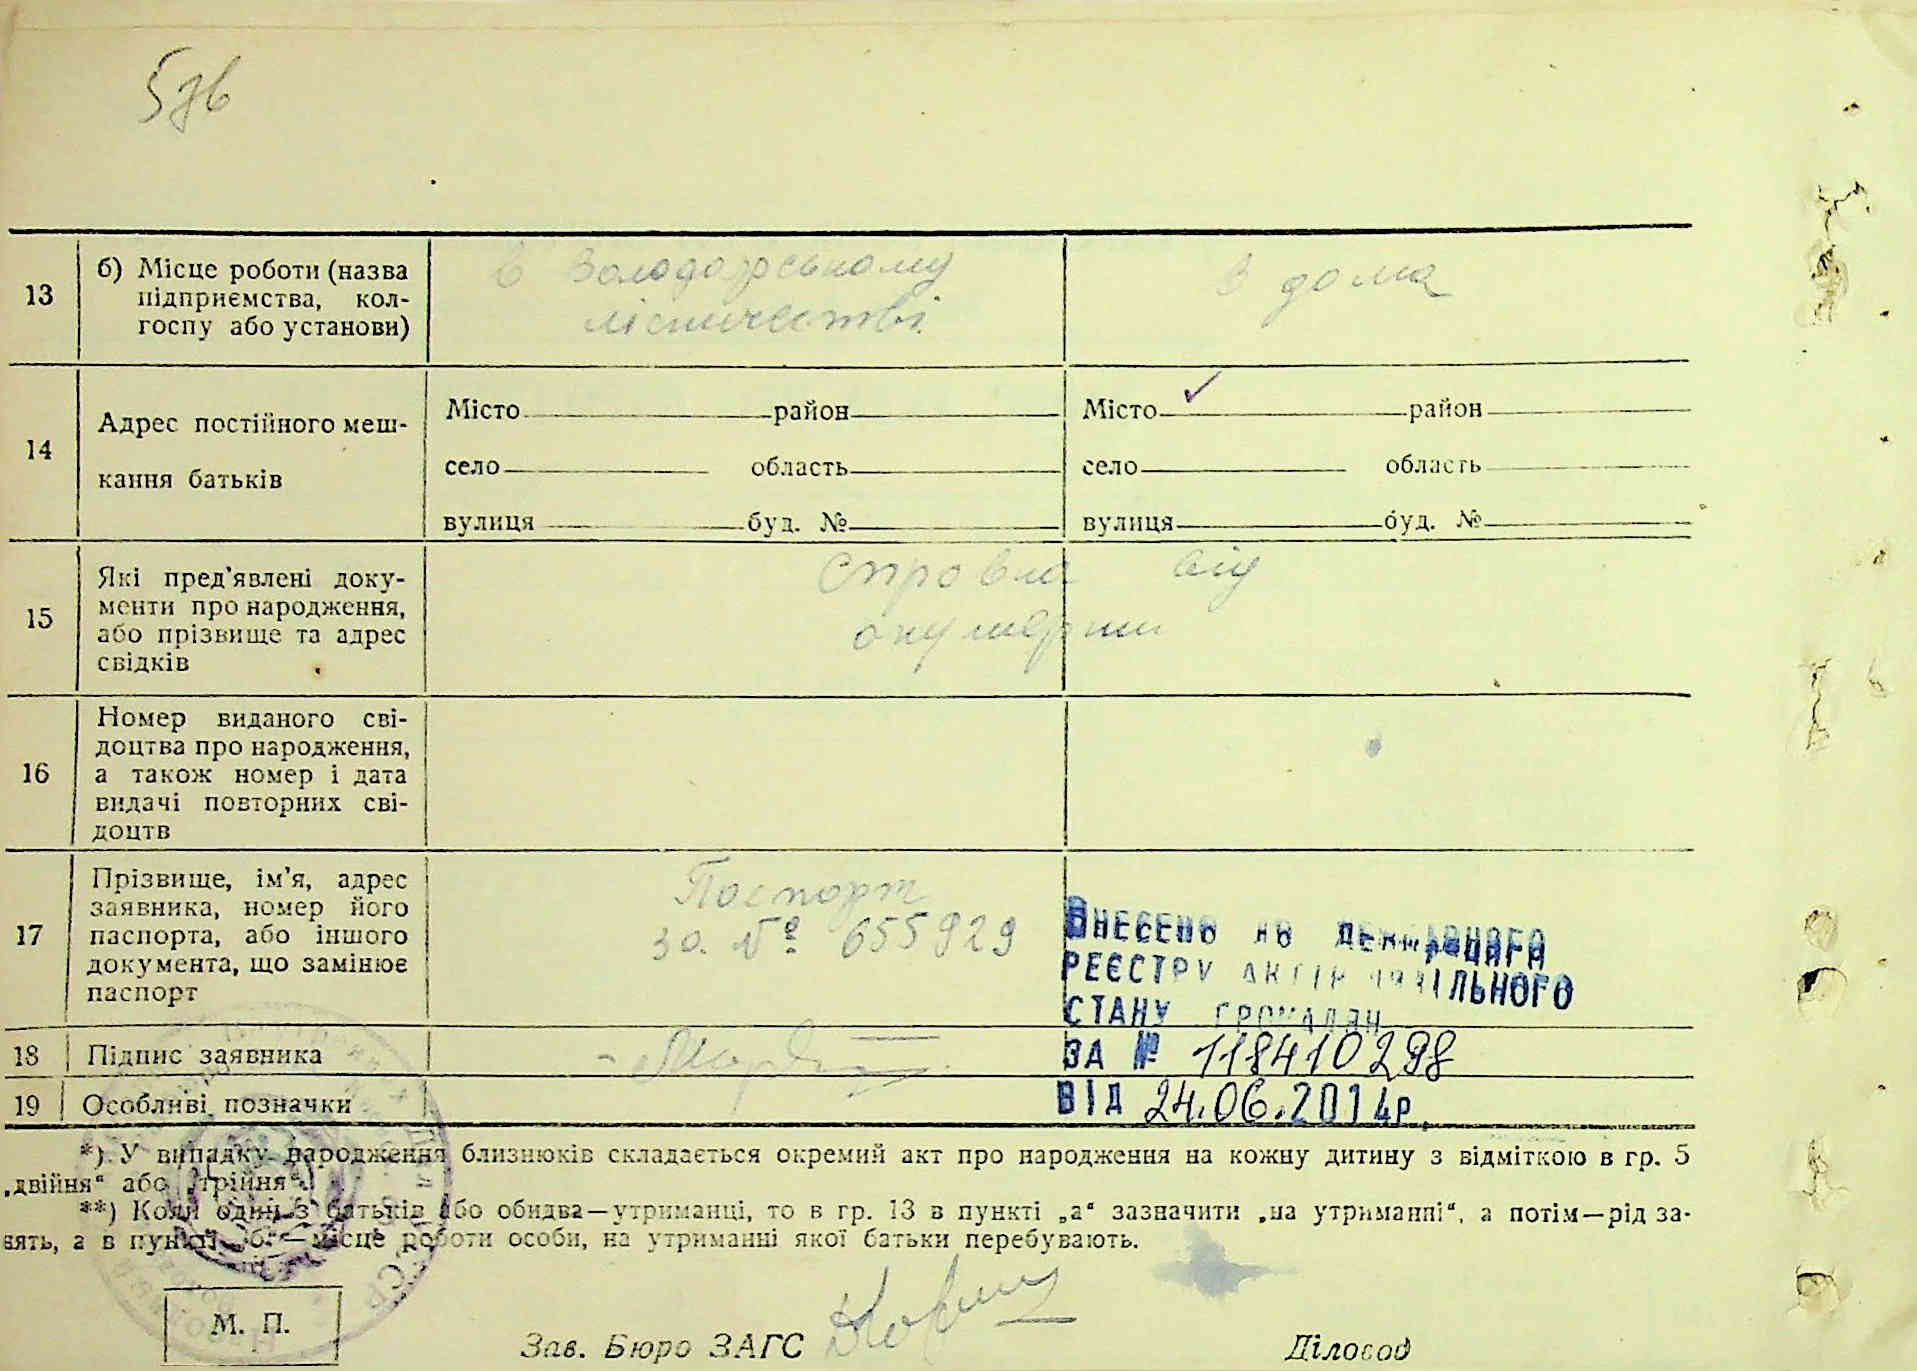 578
13 б) Місце роботи (назва
підприємства, кол-
госпу або установи)
в Володарському
лісничестві
З дома
14 Адрес постійного меш-
кання батьків
Місто район Місто район
село область село область
вулиця буд. № вулиця буд. №
15 Які пред'явлені доку-
менти про народження,
або прізвище та адрес
свідків
Справка від
акушерки
16 Номер виданого сві-
доцтва про народження,
а також номер і дата
видачі повторних сві-
доцтв
17 Прізвище, ім'я, адрес
заявника, номер його
паспорта, або іншого
документа, що замінює
паспорт
Паспорт
за. № 655929
ВНЕСЕНО ДО ДЕРЖАВНОГО
РЕЄСТРУ АКТІВ ЦИВІЛЬНОГО
СТАНУ ГРОМАДЯН
ЗА № 118410298
ВІД 24.06.2014р.
18 Підпис заявника
19 Особливі позначки
*) У випадку народження близнюків складається окремий акт про народження на кожну дитину з відміткою в гр. 5
„двійня“ або „трійня“.
**) Коли один з батьків або обидва—утриманці, то в гр. 13 в пункті „а“ зазначити „на утриманні“, а потім—рід за-
нять, а в пункті „б“—місце роботи особи, на утриманні якої батьки перебувають.
М. П.
Зав. Бюро ЗАГС
Діловод